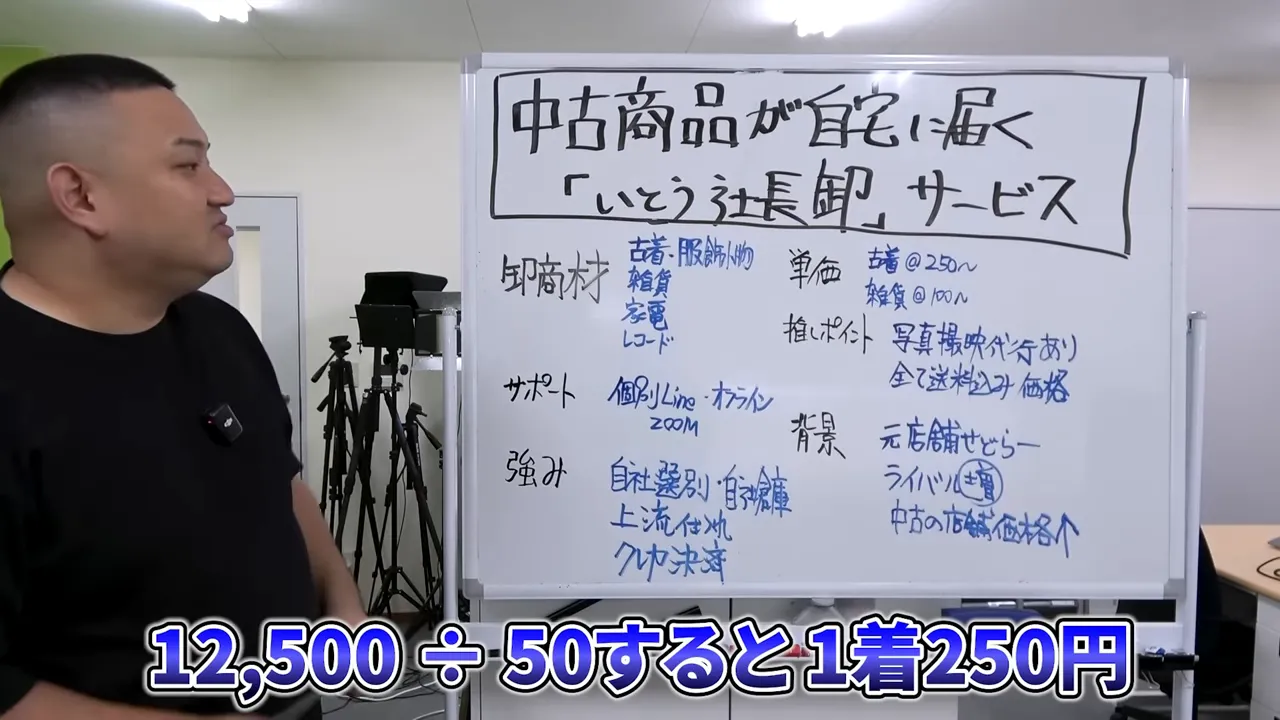 中古商品が自宅に届く
「いとう社長卸」サービス
卸商材
古着・服飾小物
雑貨
家電
レコード
サポート
個別Line・オンライン
ZOOM
強み
自社選別・自社倉庫
上流仕入れ
クレカ決済
単価
古着@250〜
雑貨@100〜
推しポイント
写真撮影代行あり
全て送料込み価格
背景
元店舗せどらー
ライバル増
中古の店舗価格↑
12,500 ÷ 50すると 1着250円